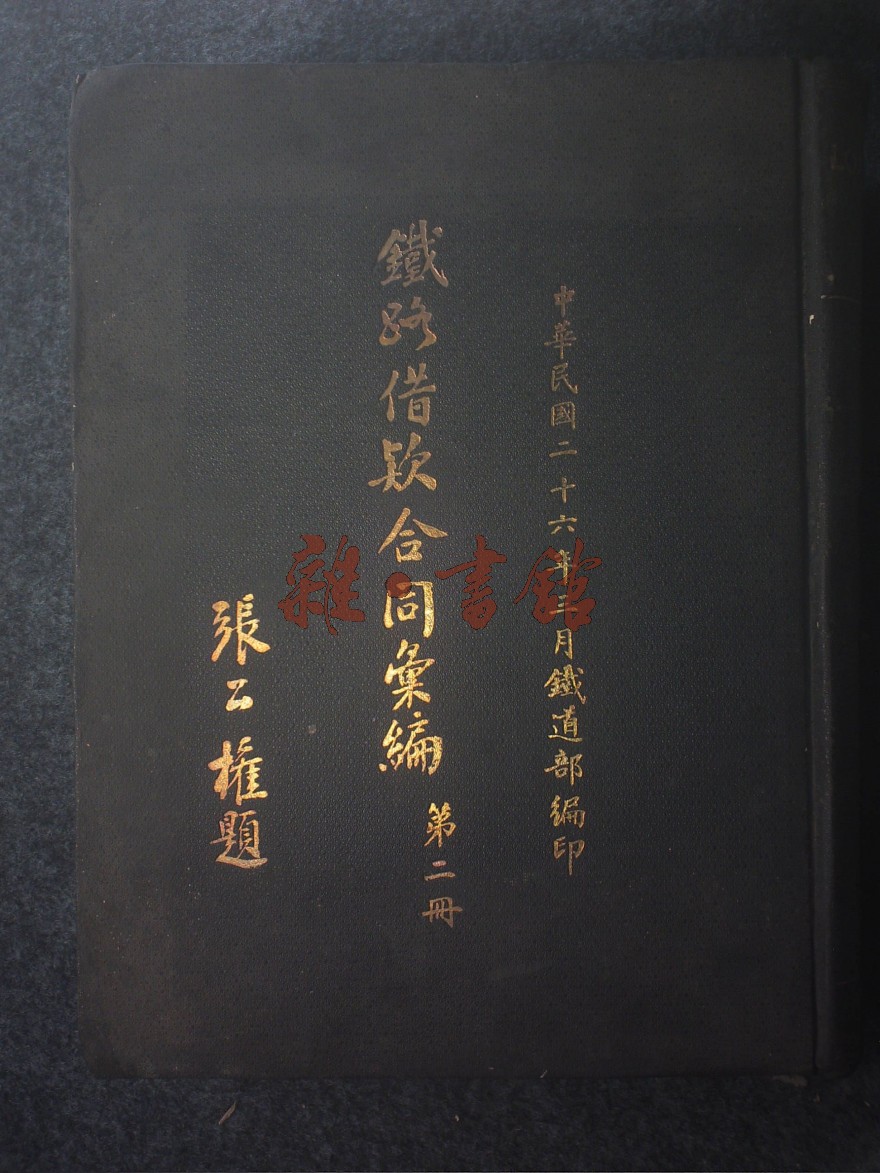 中華民國二十六年三月鐵道部編印
鐵路借款合同彙編
第二冊
張公權題
雜·書館